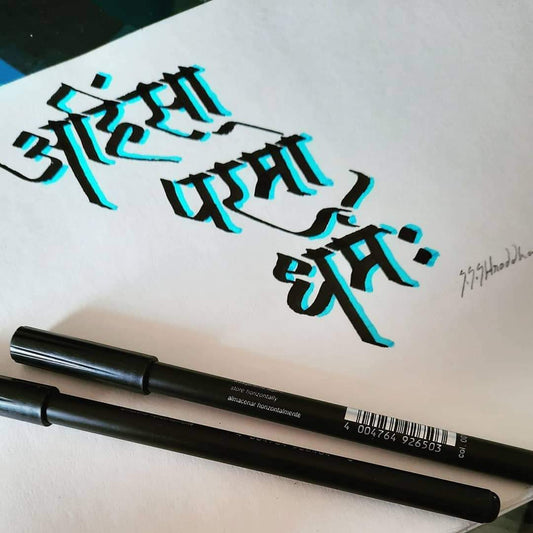 अहिंसा
परमो
धर्मः
store horizontally
almacenar horizontalmente
4 004764 926503